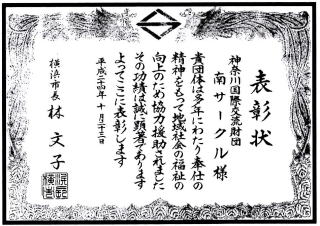 表彰状
神奈川国際交流財団
南サークル様
貴団体は多年にわたり奉仕の
精神をもって地域社会の福祉の
向上のため協力援助されました
その功績は誠に顕著であります
よってここに表彰します
平成二十四年十月二十三日
横浜市長 林文子